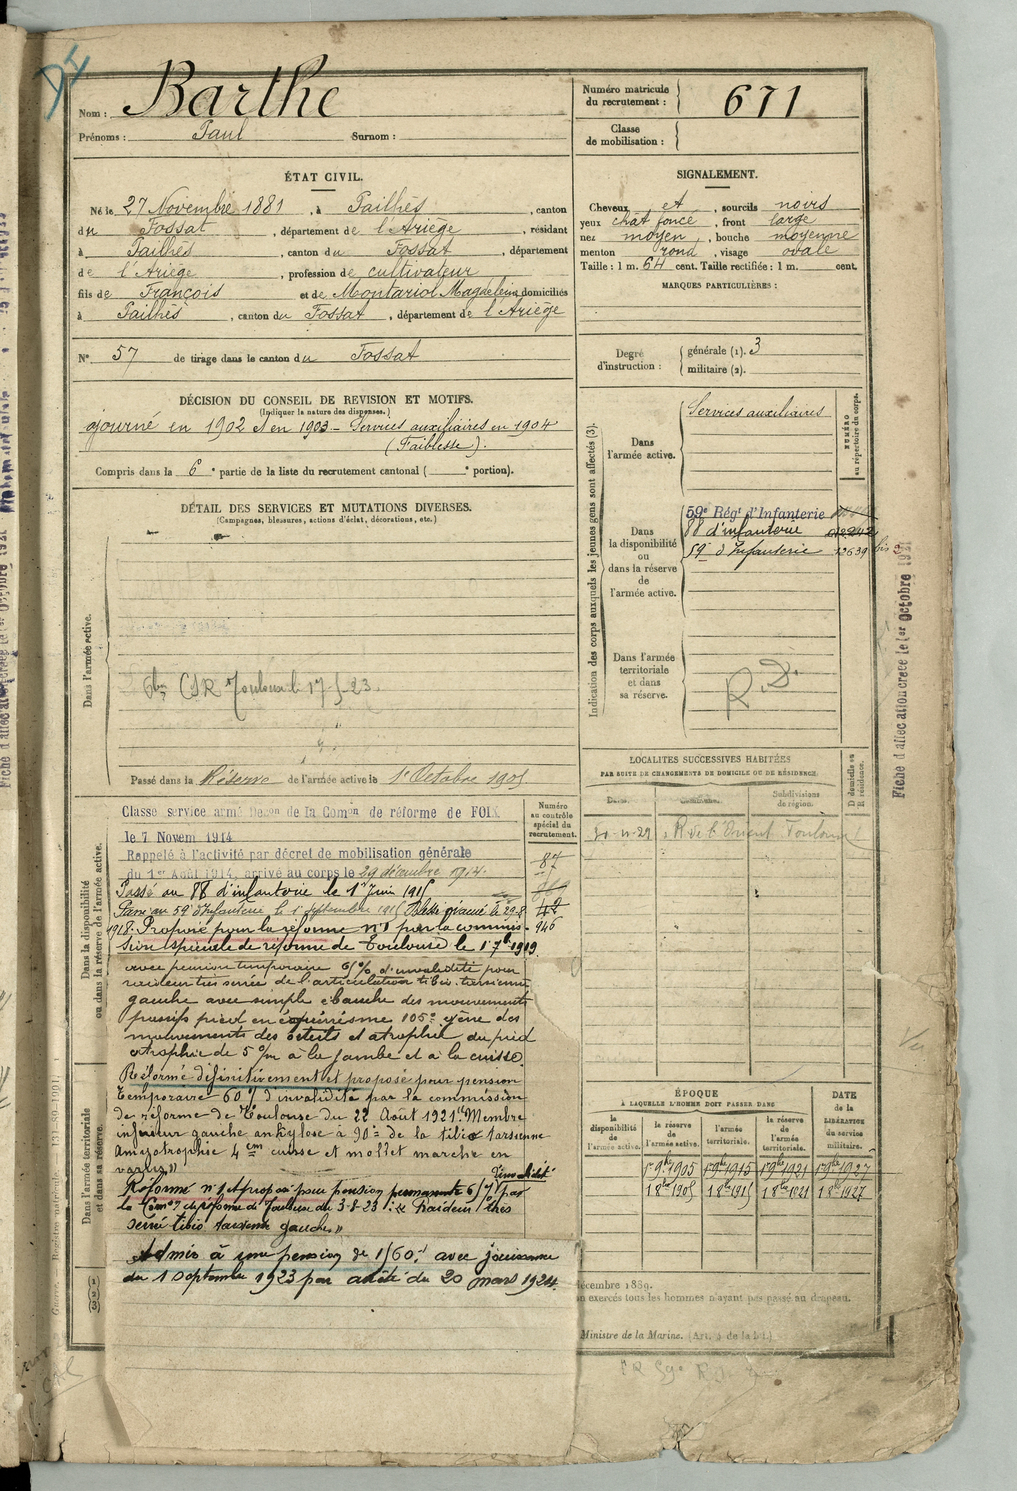 Nom : Barthe
Prénoms : Paul Surnom :
Numéro matricule du recrutement : 671
Classe de mobilisation :
ÉTAT CIVIL.
Né le 27 Novembre 1881, à Pailhès, canton
du Fossat, département de l'Ariège, résidant
à Pailhès, canton du Fossat, département
de l'Ariège, profession de cultivateur
fils de François et de Montariol Magdeleine domiciliés
à Pailhès, canton du Fossat, département de l'Ariège
N° 57 de tirage dans le canton du Fossat
SIGNALEMENT.
Cheveux et, sourcils noirs
yeux chat foncé, front large
nez moyen, bouche moyenne
menton rond, visage ovale
Taille : 1 m. 64 cent. Taille rectifiée : 1 m. cent.
MARQUES PARTICULIÈRES :
Degré d'instruction : générale (1). 3
militaire (2).
DÉCISION DU CONSEIL DE REVISION ET MOTIFS.
(Indiquer la nature des dispenses.)
ajourné en 1902 et en 1903 - Services auxiliaires en 1904
(Faiblesse).
Compris dans la 6e partie de la liste du recrutement cantonal ( e portion).
DÉTAIL DES SERVICES ET MUTATIONS DIVERSES.
(Campagnes, blessures, actions d'éclat, décorations, etc.)
Dans l'armée active.
CSR Toulouse
Passé dans la Réserve de l'armée active le 1er Octobre 1905
Indication des corps auxquels les jeunes gens sont affectés (3).
NUMÉRO au répertoire du corps.
Dans l'armée active.
Services auxiliaires
Dans la disponibilité ou dans la réserve de l'armée active.
59e Régt d'Infanterie
88 d'infanterie
59e d'Infanterie 12639 bis
Dans l'armée territoriale et dans sa réserve.
R.D.
Fiche d'affectation créée le 1er octobre 1921
LOCALITÉS SUCCESSIVES HABITÉES
PAR SUITE DE CHANGEMENTS DE DOMICILE OU DE RÉSIDENCE.
Dates. Communes. Subdivisions de région. D domicile ou R résidence.
R de l'Orient Toulouse
Dans la disponibilité ou dans la réserve de l'armée active.
Numéro au contrôle spécial du recrutement.
Classé service armé Décon de la Comon de réforme de FOIX
le 7 Novem 1914
Rappelé à l'activité par décret de mobilisation générale
du 1er Août 1914, arrivé au corps le 29 décembre 1914.
87
Passé au 88 d'infanterie le 1er Juin 1915
Passé au 59 d'Infanterie le 1er septembre 1915 Blessé évacué le 29.8
42
1918. Proposé pour la réforme n°1 par la commis-
946
sion spéciale de réforme de Toulouse le 1 7b 1919
avec pension temporaire 65% d'invalidité pour
raideur très serrée de l'articulation tibio-tarsienne
gauche avec simple ébauche des mouvements
passifs pied en équinisme 105° gêne des
mouvements des orteils et atrophie du pied
atrophie de 5 c/m à la jambe et à la cuisse.
Réformé définitivement et proposé pour pension
temporaire 60% d'invalidité par la commission
de réforme de Toulouse du 22 Août 1921 "Membre
inférieur gauche ankylose à 90° de la tibio tarsienne
Amyotrophie 4 cm cuisse et mollet marche en
varus"
Réformé n°1 et proposé pour pension permanente 65% d'invalidité par
la Comon de réforme de Toulouse du 3-8-23 : "Raideur très
serrée tibio tarsienne gauche"
Admis à une pension de 1560f avec jouissance
du 1 septembre 1923 par arrêté du 20 mars 1924.
Dans l'armée territoriale et dans sa réserve.
ÉPOQUE
À LAQUELLE L'HOMME DOIT PASSER DANS
la disponibilité de l'armée active.
la réserve de l'armée active.
l'armée territoriale.
la réserve de l'armée territoriale.
DATE de la LIBÉRATION du service militaire.
1 9bre 1905 1 9bre 1915 1 9bre 1921 1 9bre 1927
1 8bre 1905 1 8bre 1915 1 8bre 1921 1 8bre 1927
décembre 1889.
n exercés tous les hommes n'ayant pas passé au drapeau.
Ministre de la Marine. (Art. 9 de la loi.)